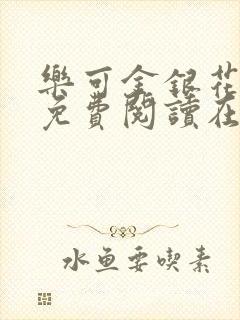 樂可金銀花
免費閱讀在
水魚要喫素